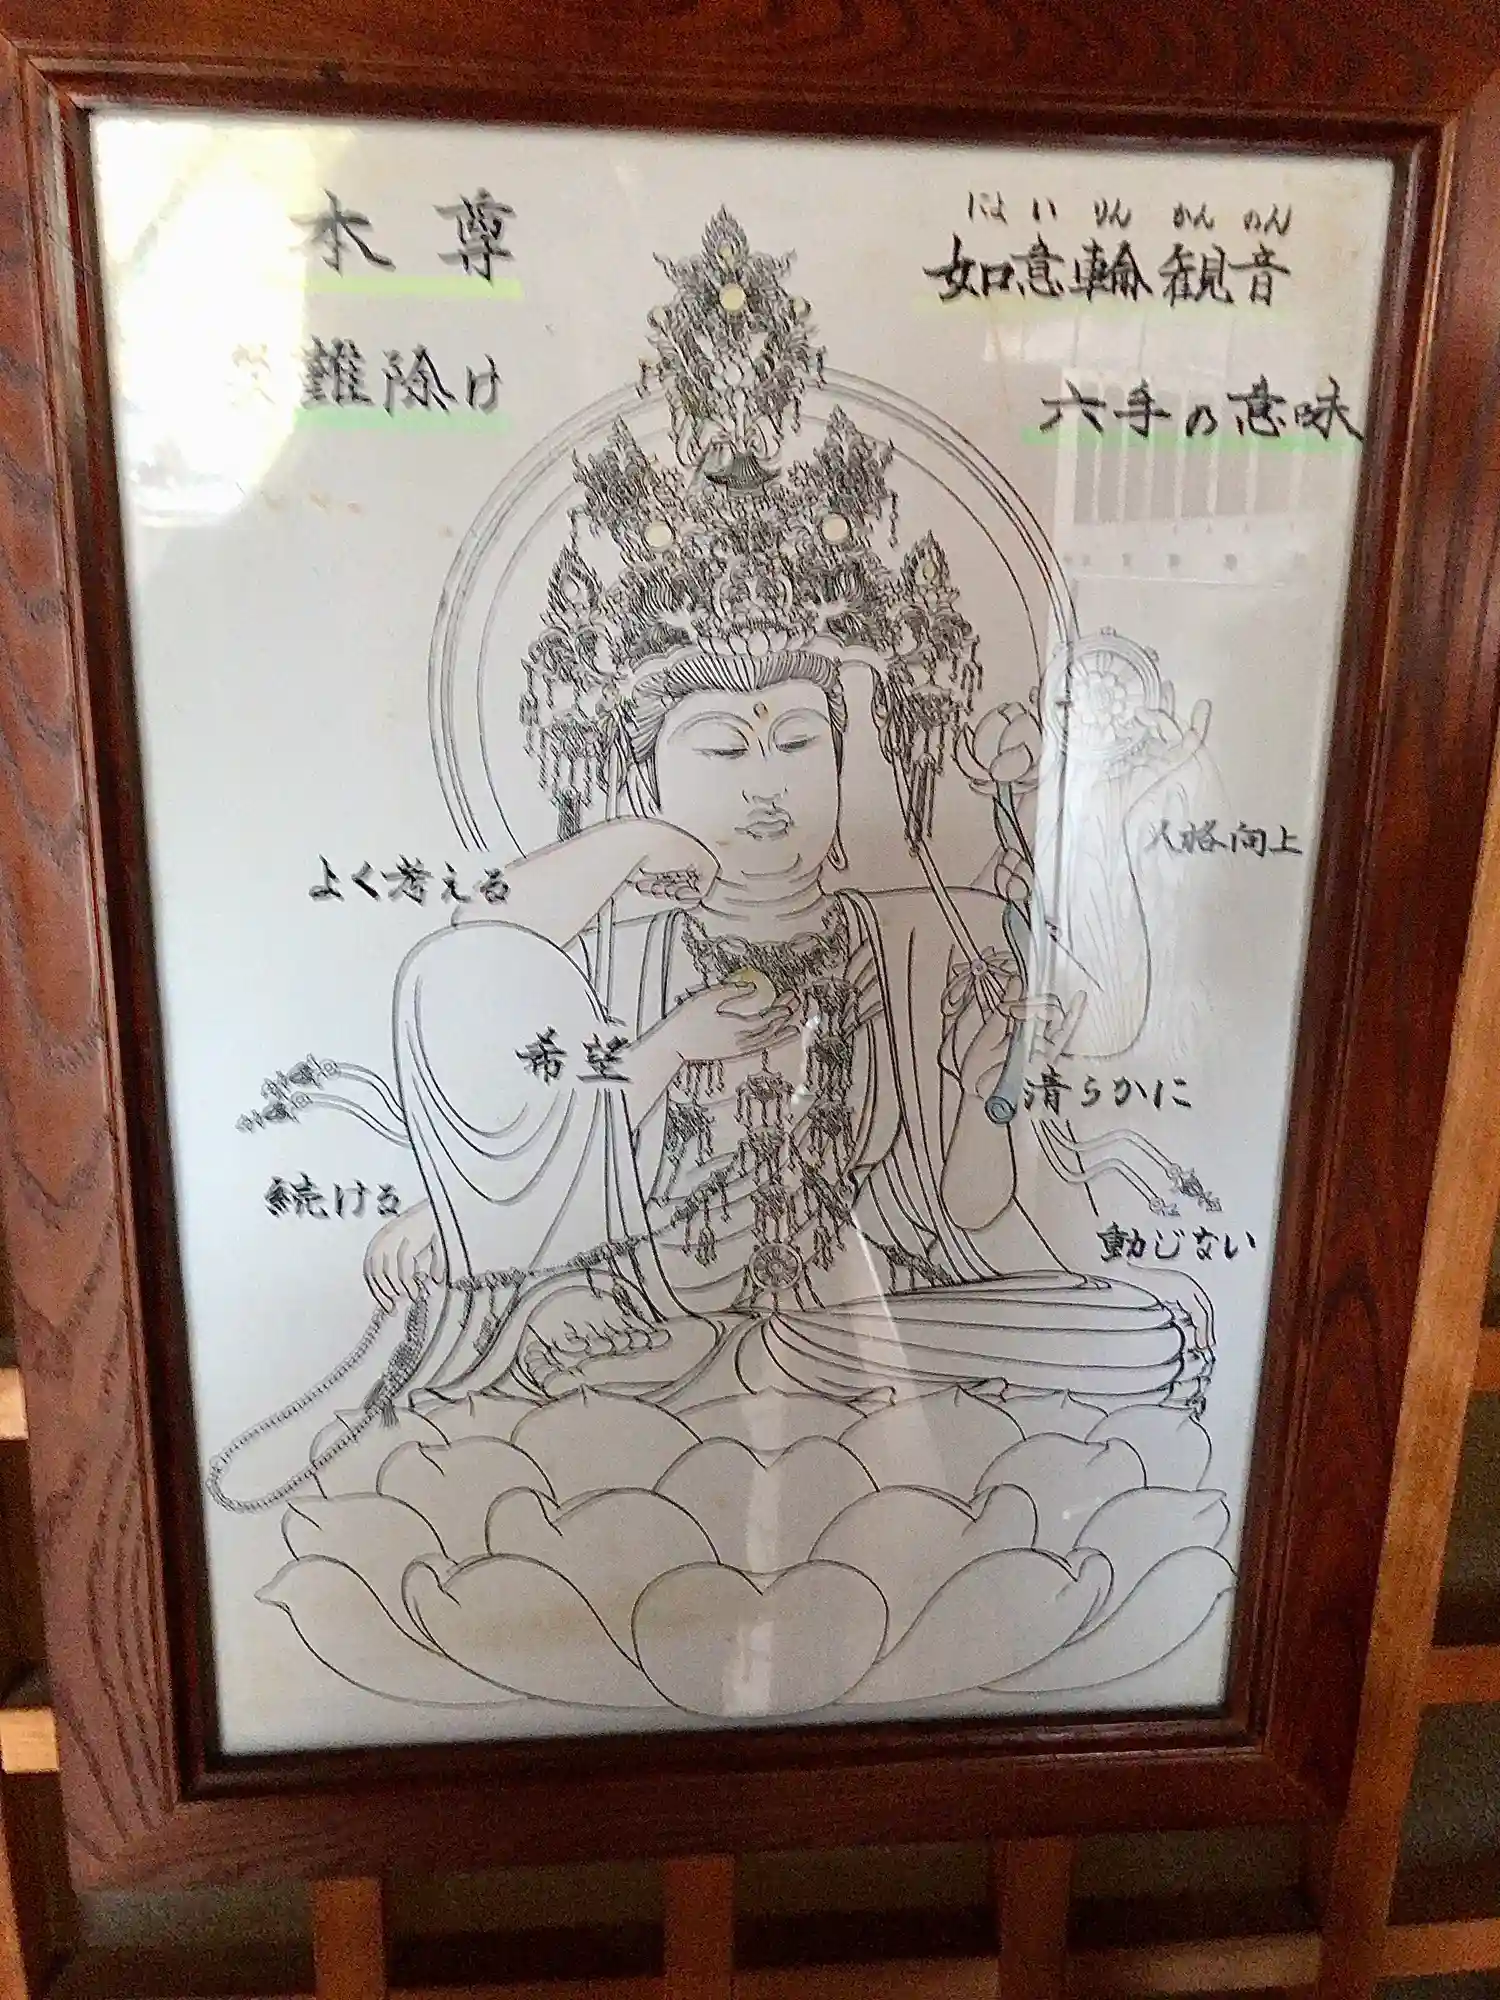 にょいりんかんのん
如意輪観音
六手の意味
本尊
難除け
人格向上
よく考える
希望
清らかに
続ける
動じない